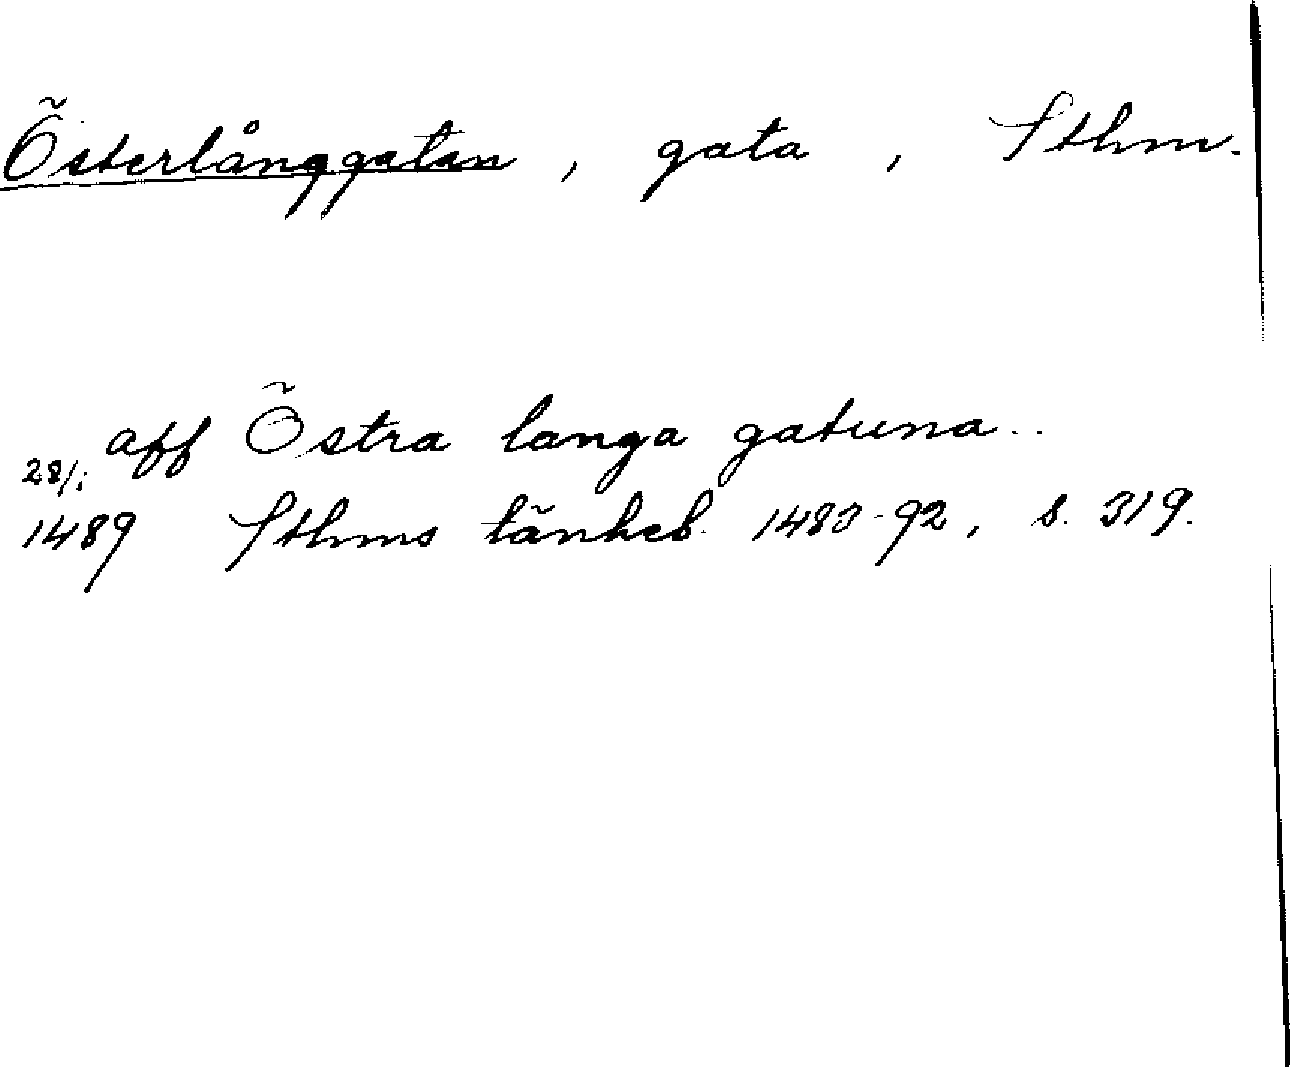 Österlånggatan, gata, Sthm.
aff Östra langa gatuna..
28/1
1489 Sthms tänkeb. 1483-92, s. 319.